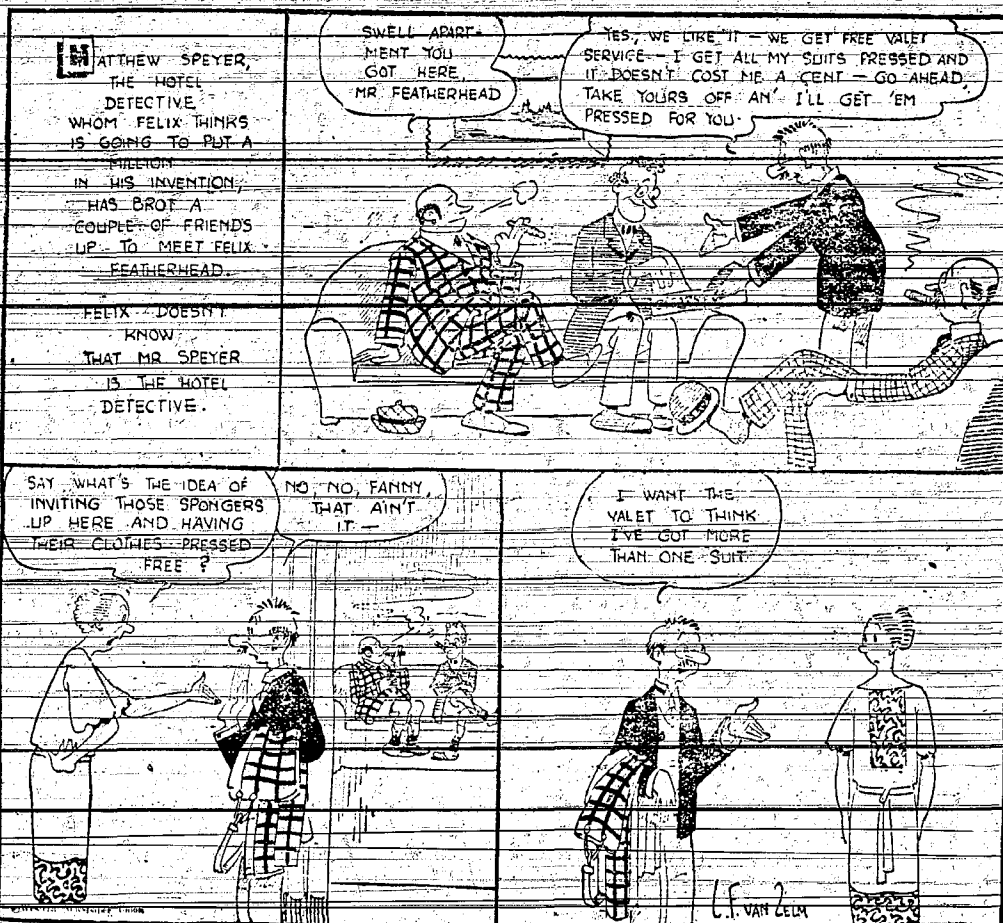 MATTHEW SPEYER,
THE HOTEL
DETECTIVE
WHOM FELIX THINKS
IS GOING TO PUT A
MILLION
IN HIS INVENTION,
HAS BROT A
COUPLE OF FRIENDS
UP TO MEET FELIX
FEATHERHEAD.
FELIX DOESN'T
KNOW
THAT MR SPEYER
IS THE HOTEL
DETECTIVE.
SWELL APART-
MENT YOU
GOT HERE,
MR FEATHERHEAD
YES, WE LIKE IT — WE GET FREE VALET
SERVICE — I GET ALL MY SUITS PRESSED AND
IT DOESN'T COST ME A CENT — GO AHEAD
TAKE YOURS OFF AN' I'LL GET 'EM
PRESSED FOR YOU.
SAY WHAT'S THE IDEA OF
INVITING THOSE SPONGERS
UP HERE AND HAVING
THEIR CLOTHES PRESSED
FREE?
NO, NO, FANNY,
THAT AIN'T
IT —
I WANT THE
VALET TO THINK
I'VE GOT MORE
THAN ONE SUIT.
L.F. VAN ZELM